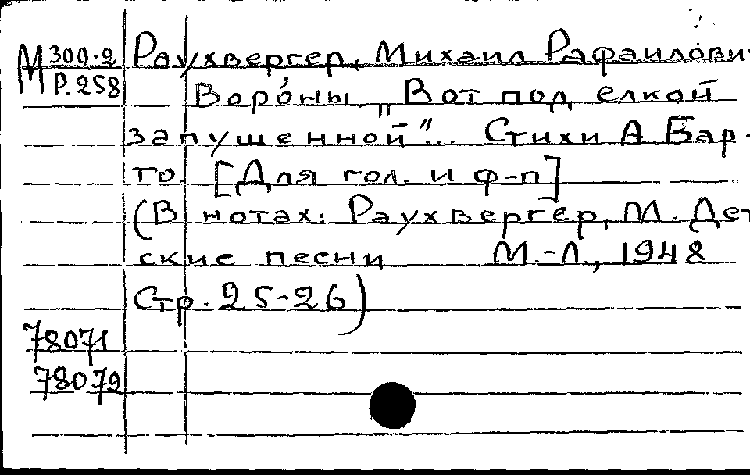 М 300-2 Раухвергер, Михаил Рафаилови
Р. 258 Воро́ны „Вот под елкой
запушенной"... Стихи А Бар-
то. [Для гол. и ф-п]
(В нотах: Раухвергер, М. Дет
ские песни М.-Л., 1948
Стр. 25-26)
78071
78079